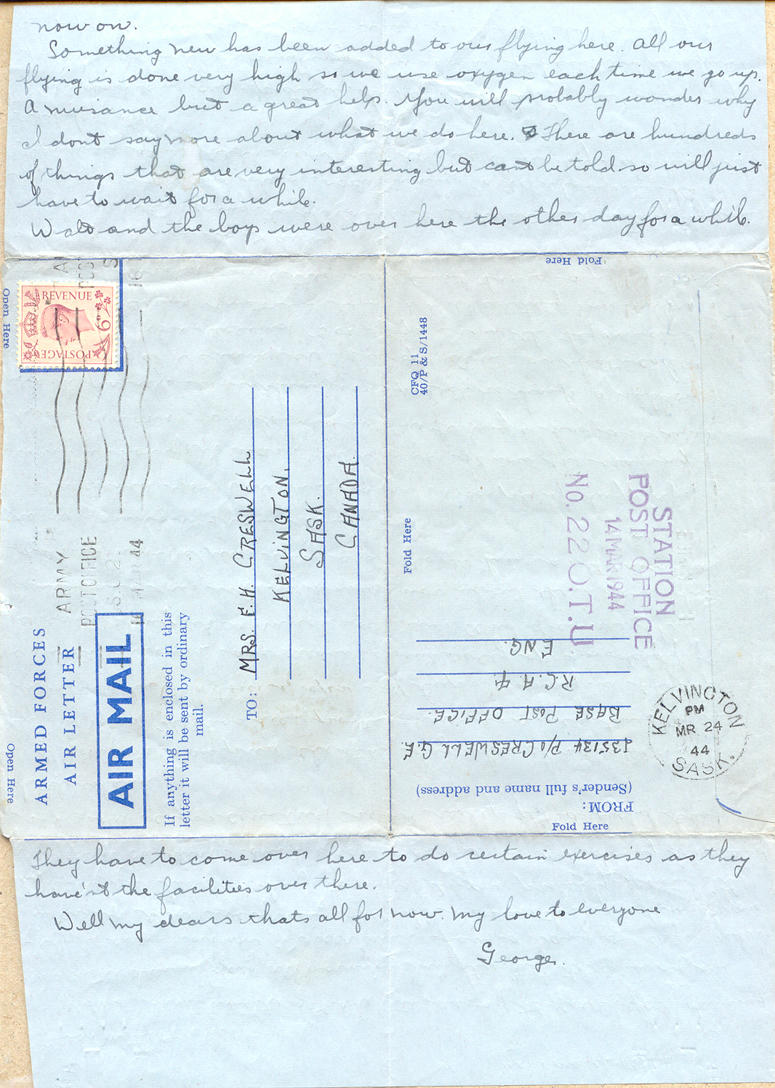 now on.
Something new has been added to our flying here. All our
flying is done very high so we use oxygen each time we go up.
A nuisance but a great help. You will probably wonder why
I dont say more about what we do here. There are hundreds
of things that are very interesting but cant be told so will just
have to wait for a while.
Wald and the boys were over here the other day for a while.
Open Here
Open Here
REVENUE
POSTAGE
ARMED FORCES
AIR LETTER
AIR MAIL
ARMY
POST OFFICE
44
If anything is enclosed in this
letter it will be sent by ordinary
mail.
TO: MRS. F. H. CRESWELL
KELVINGTON,
SASK.
CANADA.
Fold Here
CFQ 11
40/P & S/1448
Fold Here
STATION
POST OFFICE
14 MAR 1944
No. 22 O.T.U
FROM:
(Sender's full name and address)
P/O CRESWELL G.E.
BASE POST OFFICE.
R.C.A.F.
ENG.
KELVINGTON
PM
MR 24
44
SASK.
Fold Here
They have to come over here to do certain exercises as they
haven't the facilities over there.
Well my dears thats all for now. my love to everyone
George.